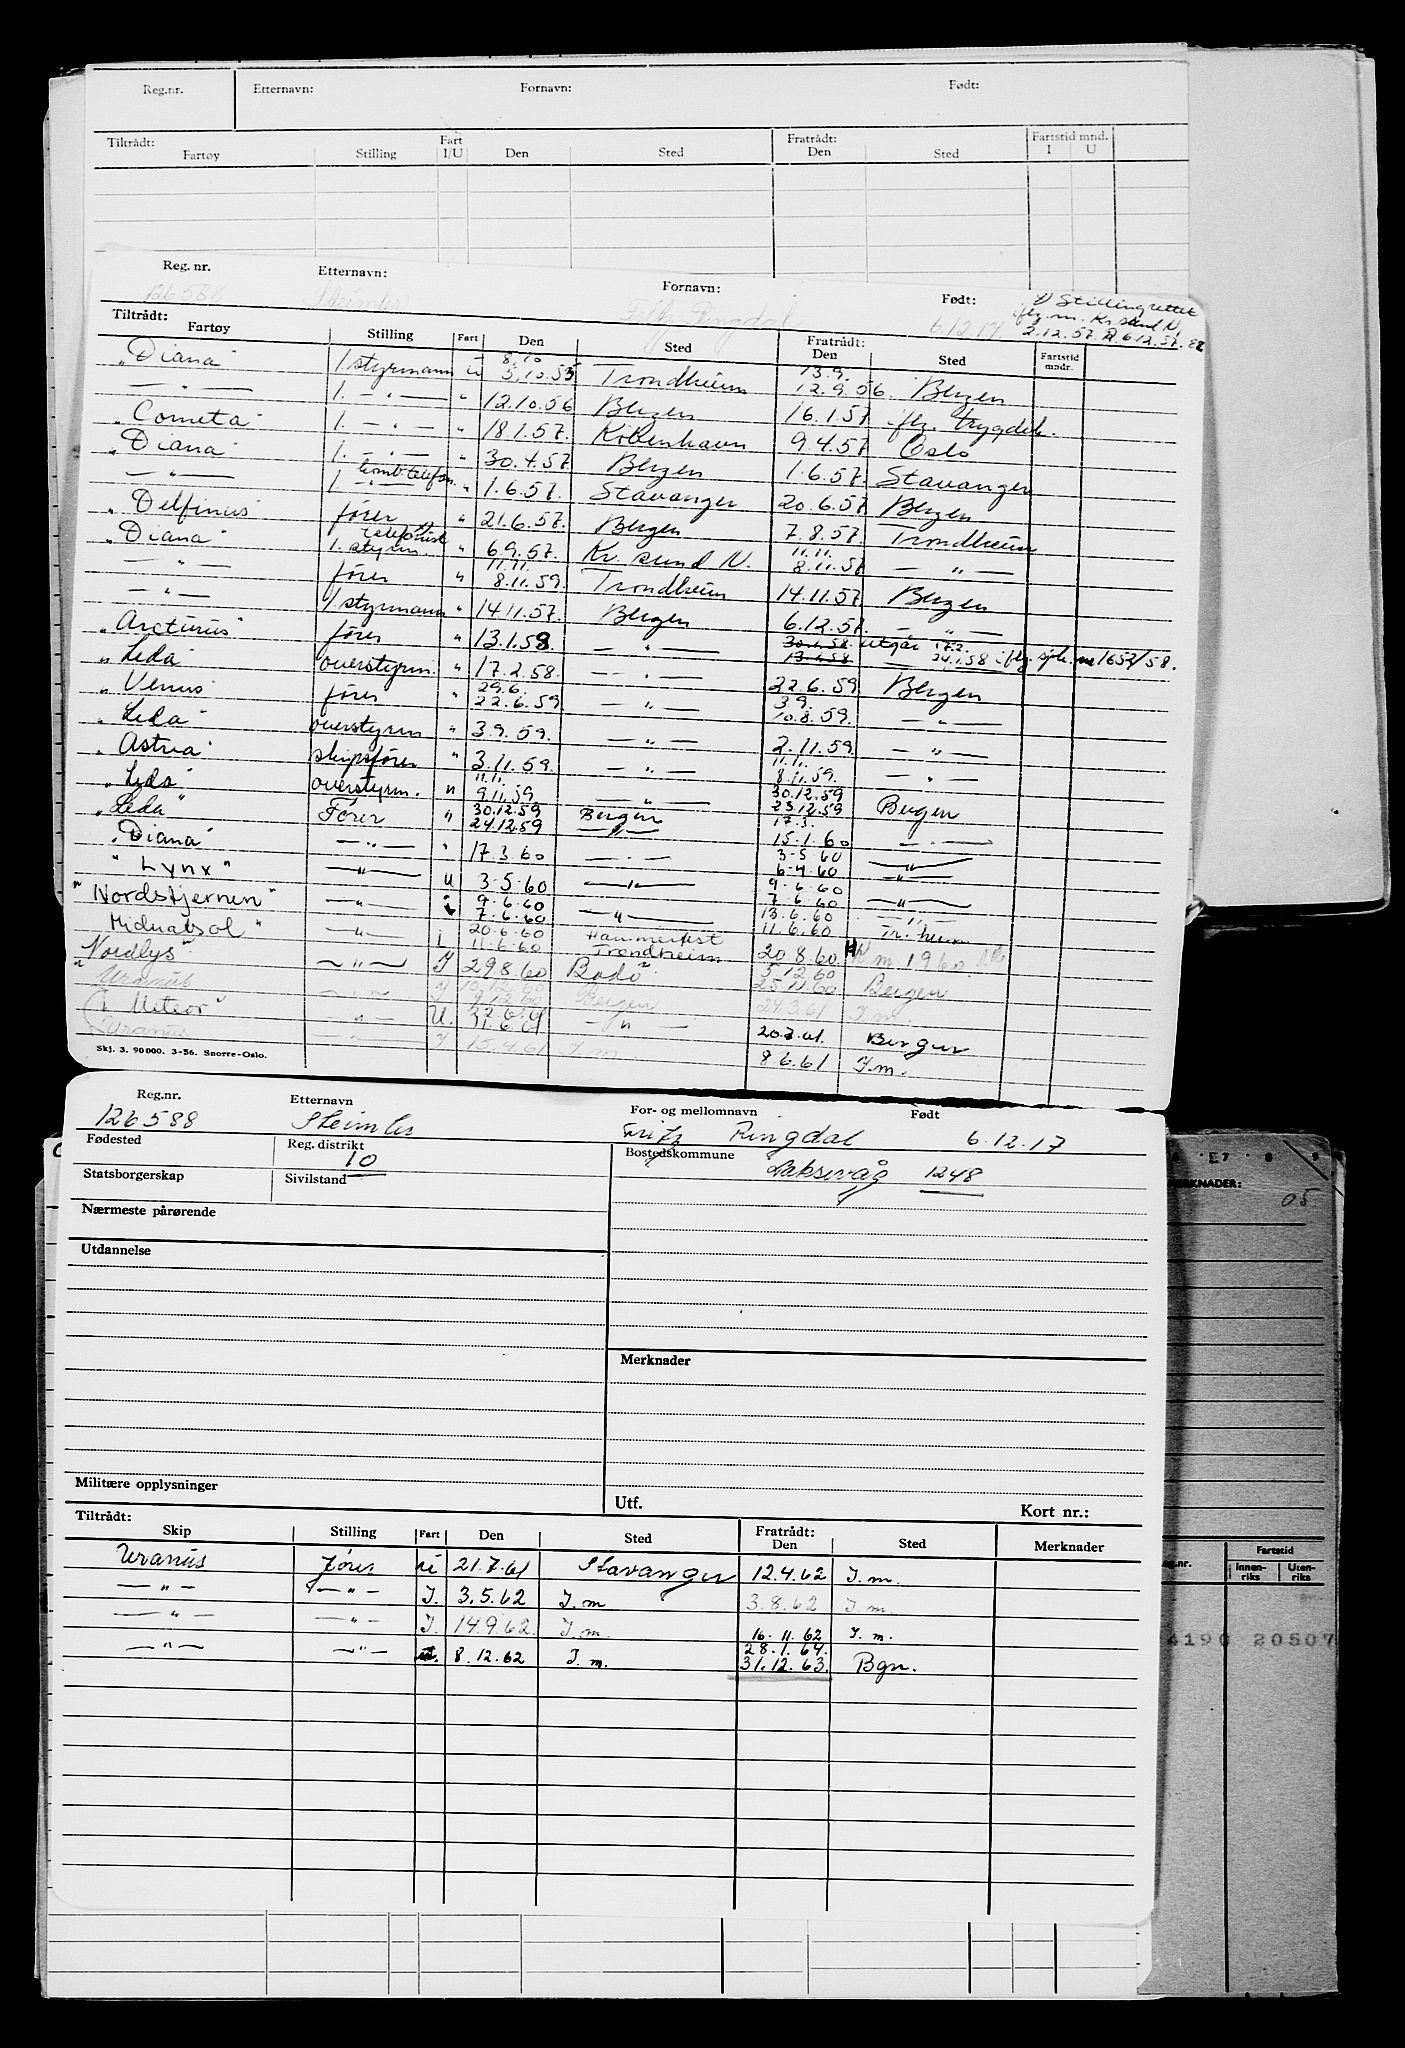 Reg.nr. Etternavn: Fornavn: Født:
Tiltrådt: Fart Fratrådt: Fartstid mnd.
Fartøy Stilling I/U Den Sted Den Sted I U
Reg. nr. Etternavn: Fornavn: Født:
126588 Steimler Fritz Ringdal 6.12.17
Stillingrettet
iflg. m. Kr.sund N.
2.12.57. 6.12.57.
Tiltrådt: Fratrådt:
Fartøy Stilling Fart Den Sted Den Sted Fartstid mndr.
8.10 13.9.
"Diana" 1 styrmann u 5.10.55 Trondheim 12.9.56. Bergen
— " — 1. — " — " 12.10.56 Bergen 16.1.57 iflg. trygdek.
"Cometa" 1. — " — " 18.1.57. København 9.4.57 Oslo
"Diana" 1. — " — " 30.4.57. Bergen 1.6.57. Stavanger
— " — 1. komb. telefon. " 1.6.57. Stavanger 20.6.57 Bergen
"Delfinus" fører " 21.6.57. Bergen 7.8.57. Trondheim
telefonist 11.11.
"Diana" 1. styrm. " 6.9.57. Kr. sund N. 8.11.57 — " —
11.11.
— " — fører " 8.11.59. Trondheim 14.11.57. Bergen
— " — 1 styrmann " 14.11.57 Bergen 6.12.57. — " —
"Arcturus" fører " 13.1.58. — " — 30.1.58. utgår 17.2.
24.1.58 iflg. sjh. 1652/58.
"Leda" overstyrm. " 17.2.58. — " — 22.6.59. Bergen
29.6. 3.9.
"Venus" fører " 22.6.59. — " — 10.8.59. — " —
"Leda" overstyrm " 3.9.59. — " — 2.11.59. — " —
11.11.
"Astrea" skipsfører " 3.11.59. — " — 8.11.59. — " —
11.11. 30.12.59
"Leda" overstyrm. " 9.11.59 — " — 23.12.59 Bergen
30.12.59 17.3.
"Leda" Fører " 24.12.59 Bergen 15.1.60 — " —
3-5 60
"Diana" — " — " 17.3.60 — " — 6-4 60 — " —
9-6 60
"Lynx" — " — u 3-5-60 — " — 7-6 60 — " —
9-6-60 13.6.60
"Nordstjernen" — " — i 7-6-60 — " — 11.6.60 Tr. heim
20-6-60 Hammerfest
Midnatsol " — " — i 11-6-60 Trondheim 20.8.60
Nordlys" — " — I 29.8.60 Bodø 5.12 60
25.11.60 Bergen
"Uranus — " — I 10.12.60
9.12.60 Bergen 24.3.61 I.m.
"Meteor" — " — U. 22.6.61
11.6.61 — " — 20.7.61. Bergen
Uranus — " — I 15.4.61 I.m. 8.6.61 I.m.
Skj. 3. 90000. 3-56. Snorre-Oslo.
Reg.nr. Etternavn For- og mellomnavn Født
126588 Steimler Fritz Ringdal 6.12.17
Fødested Reg. distrikt Bostedskommune
10 Laksevåg 1248
Statsborgerskap Sivilstand
Nærmeste pårørende
Utdannelse
Merknader
Militære opplysninger
Utf. Kort nr.:
Tiltrådt: Fratrådt:
Skip Stilling Fart Den Sted Den Sted Merknader
Uranus fører 21.7.61 Stavanger 12.4.62 I.m.
— " — — " — I. 3.5.62 I.m 3.8.62 I.m.
— " — — " — I. 14.9.62. I.m. 16.11.62 I.m.
28.1.64.
— " — — " — 8.12.62 I.m. 31.12.63. Bgn.
E 7 8 9
MERKNADER:
05
Fartstid
Innen-riks Uten-riks
4190 20507